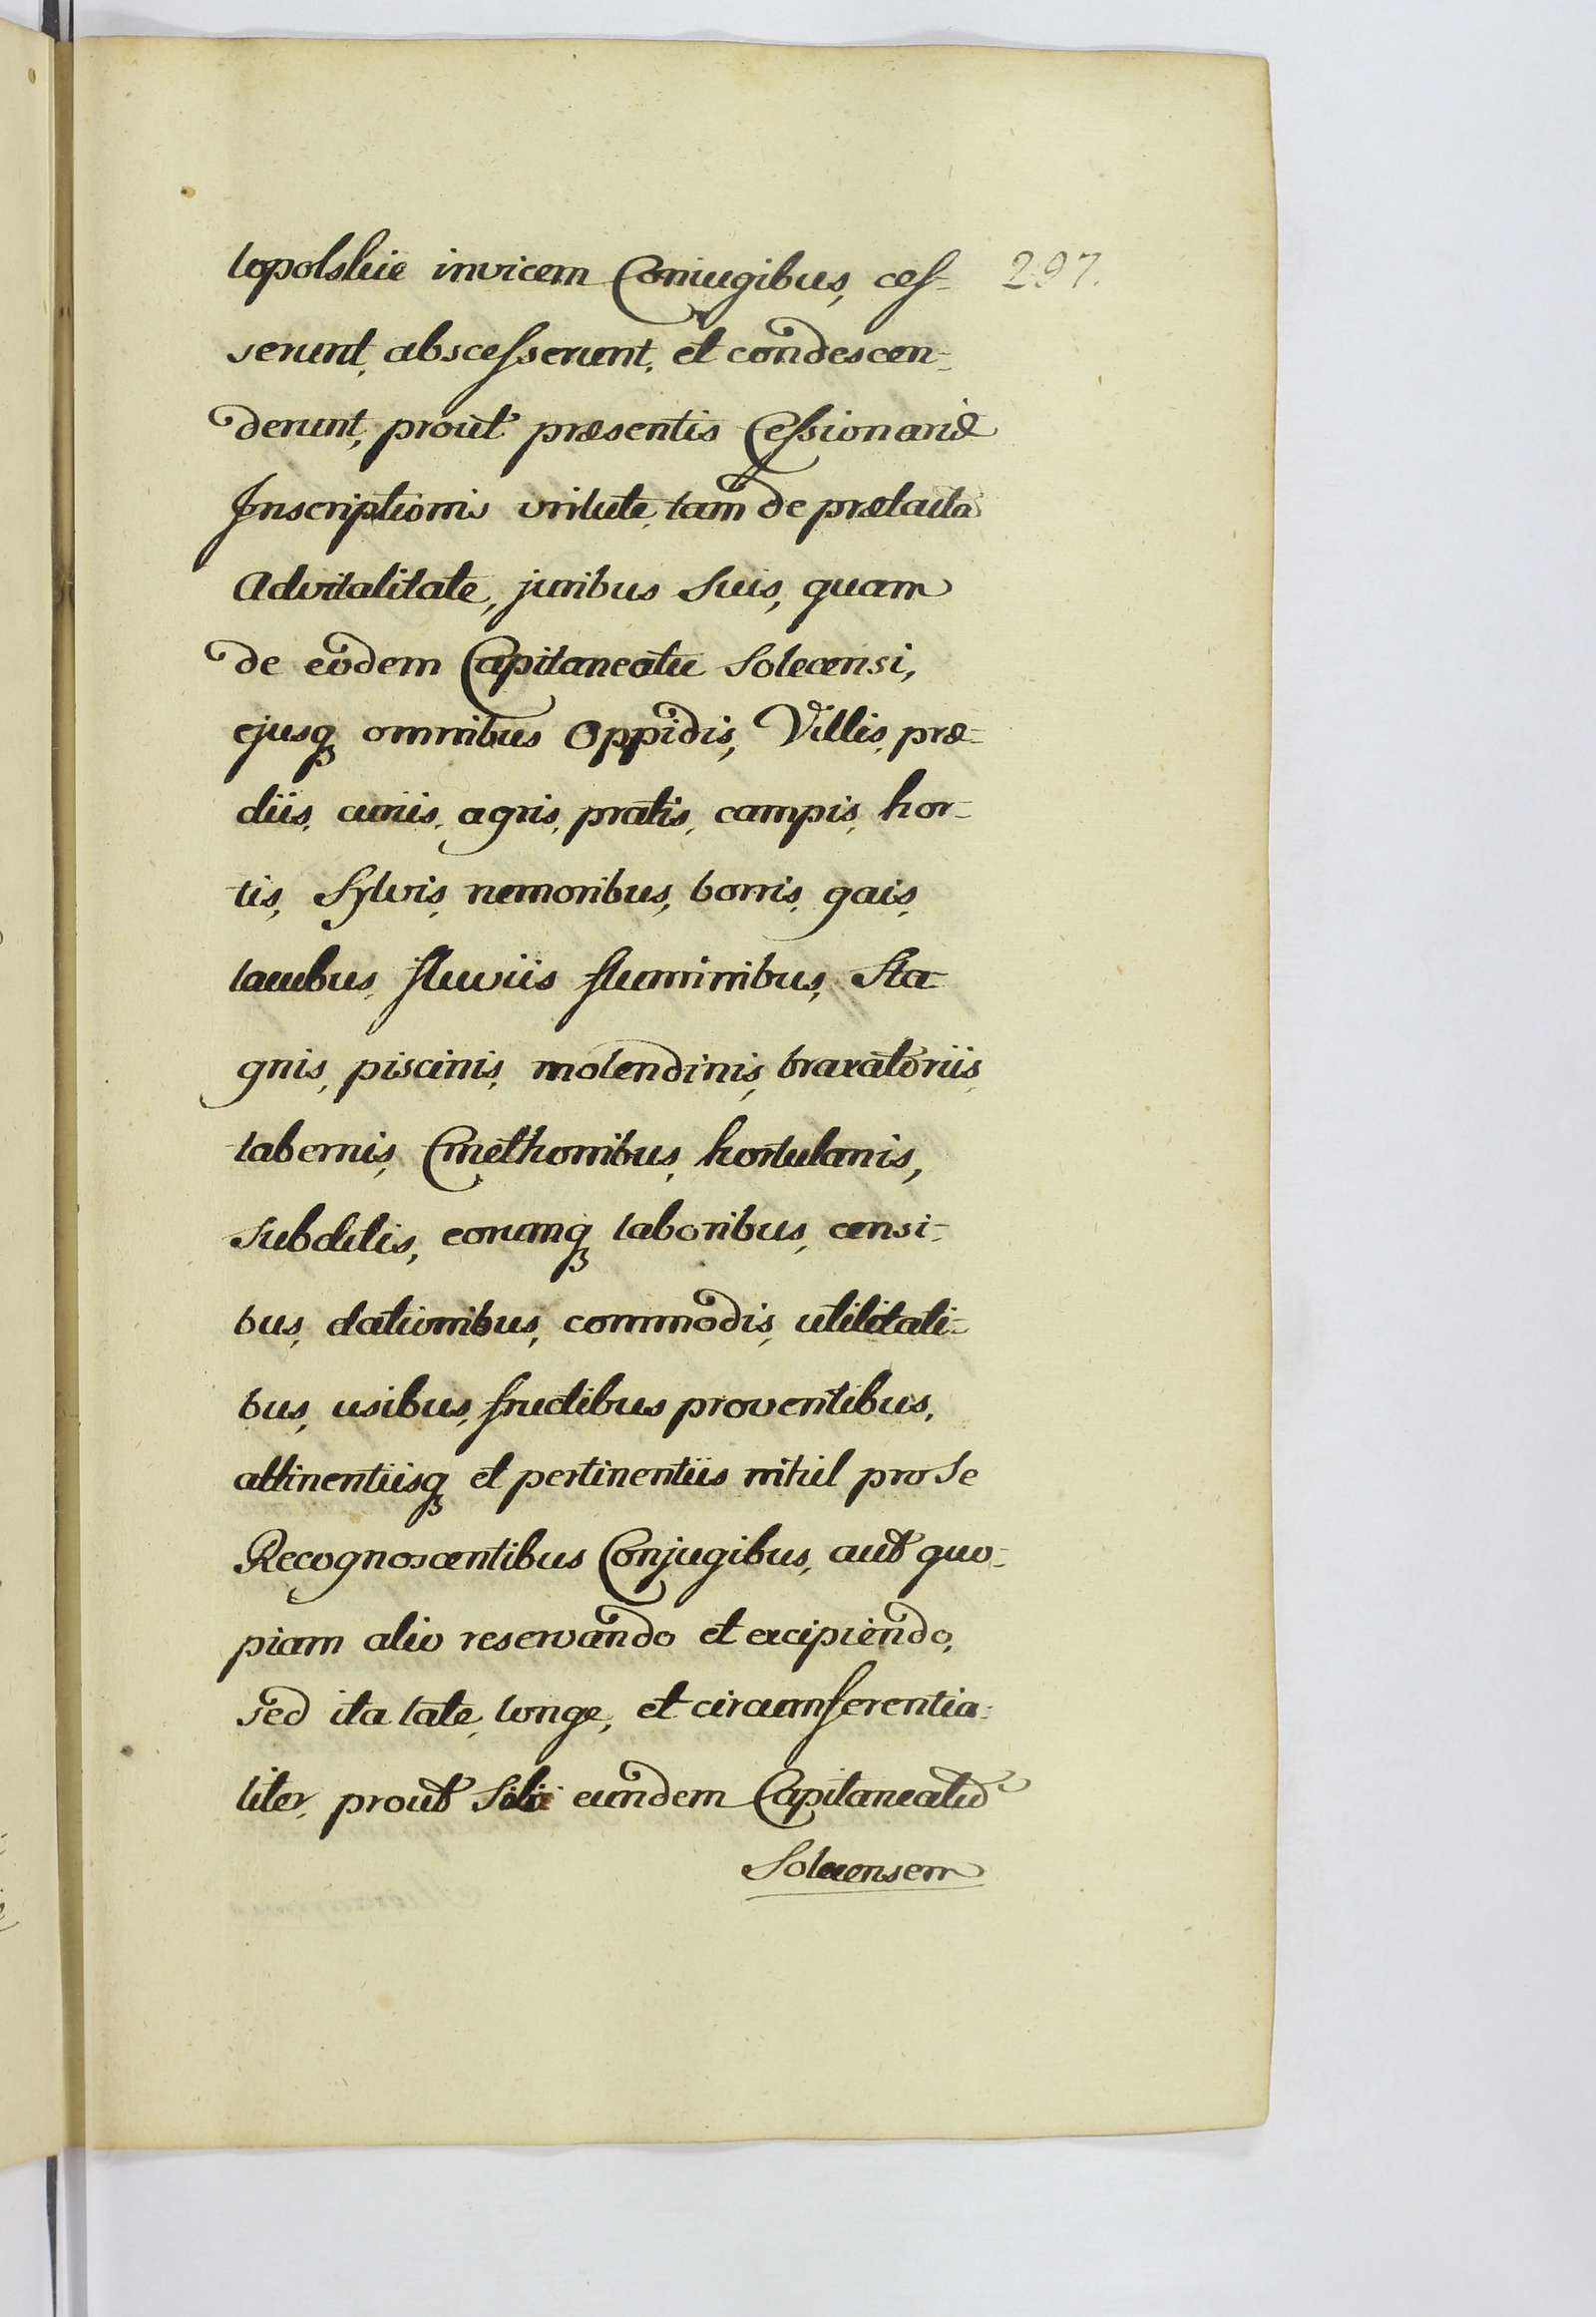 lopolskie invicem Coniugibus, ces- 297.
serunt, abscesserunt, et condescen-
derunt, prout præsentis Cessionariæ
Inscriptionis virtute, tam de prælacta
Advitalitate, juribus Suis, quam
de eodem Capitaneatu Solecensi,
ejusq; omnibus Oppidis, Villis, præ-
diis, curiis, agris, pratis, campis, hor-
tis, Sylvis, nemoribus, borris, gais,
lacubus, fluviis fluminibus, Sta-
gnis, piscinis, molendinis, braxatoriis,
tabernis, Cmethonibus, hortulanis,
Subditis, eorumq; laboribus, censi-
bus, dationibus, commodis, utilitati-
bus, usibus, fructibus proventibus,
attinentiisq; et pertinentiis nihil pro Se
Recognoscentibus Conjugibus, aut quo-
piam alio reservando et excipiendo,
sed ita late, longe, et circumferentia-
liter, prout eundem Capitaneatum
Solecensem